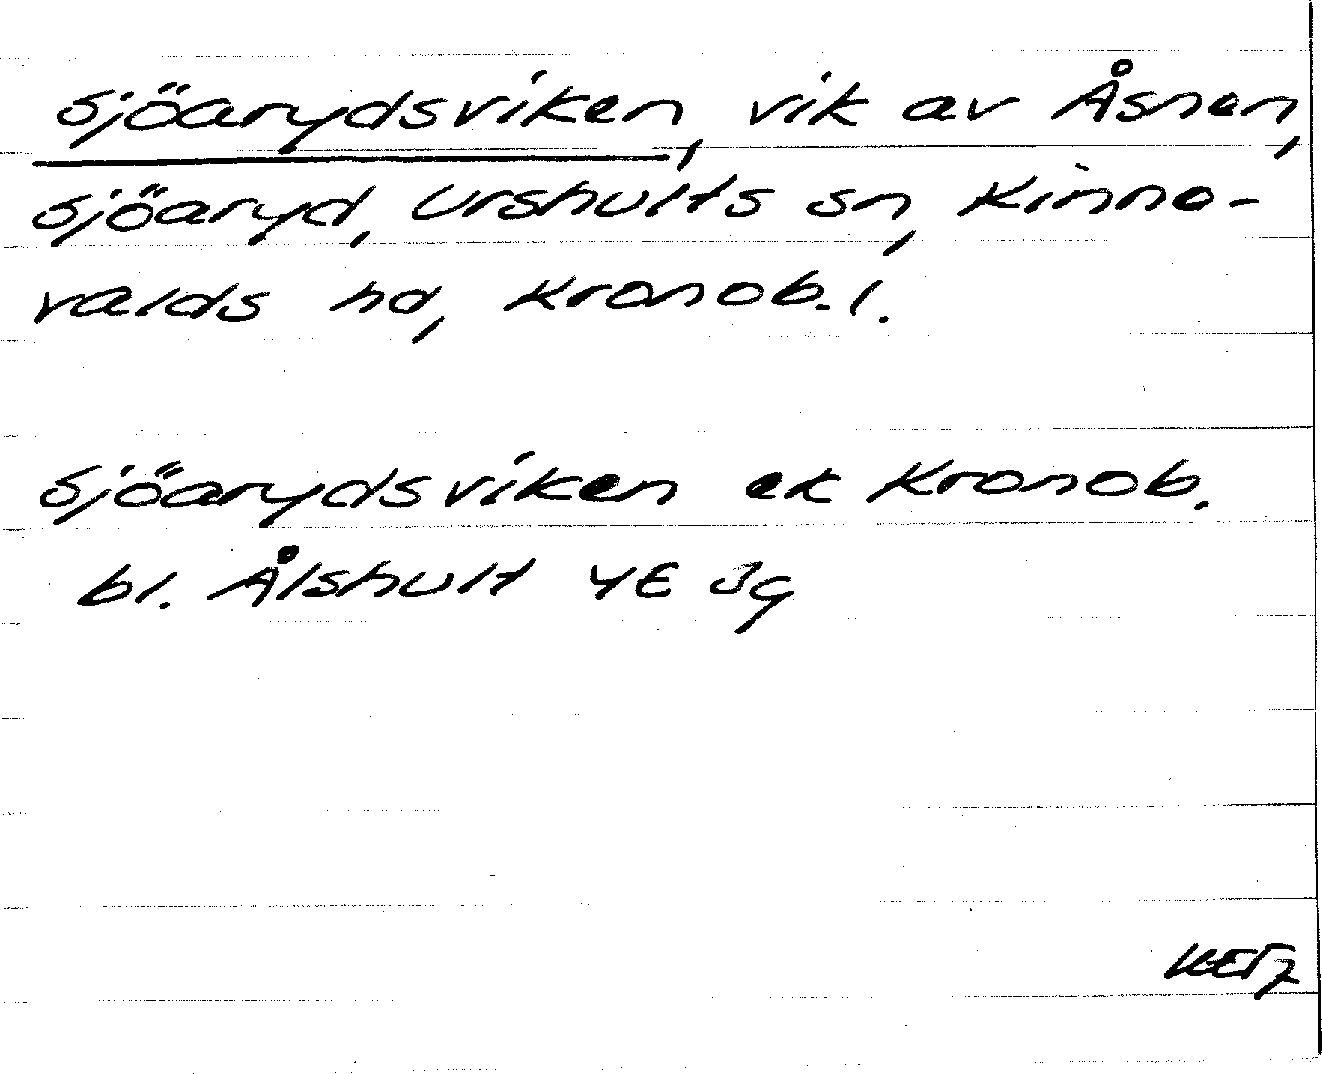 Sjöarydsviken, vik av Åsnen,
Sjöaryd, Urshults sn, Kinne-
valds hd, Kronob. l.
Sjöarydsviken ek Kronob.
bl. Ålshult 4E Jg